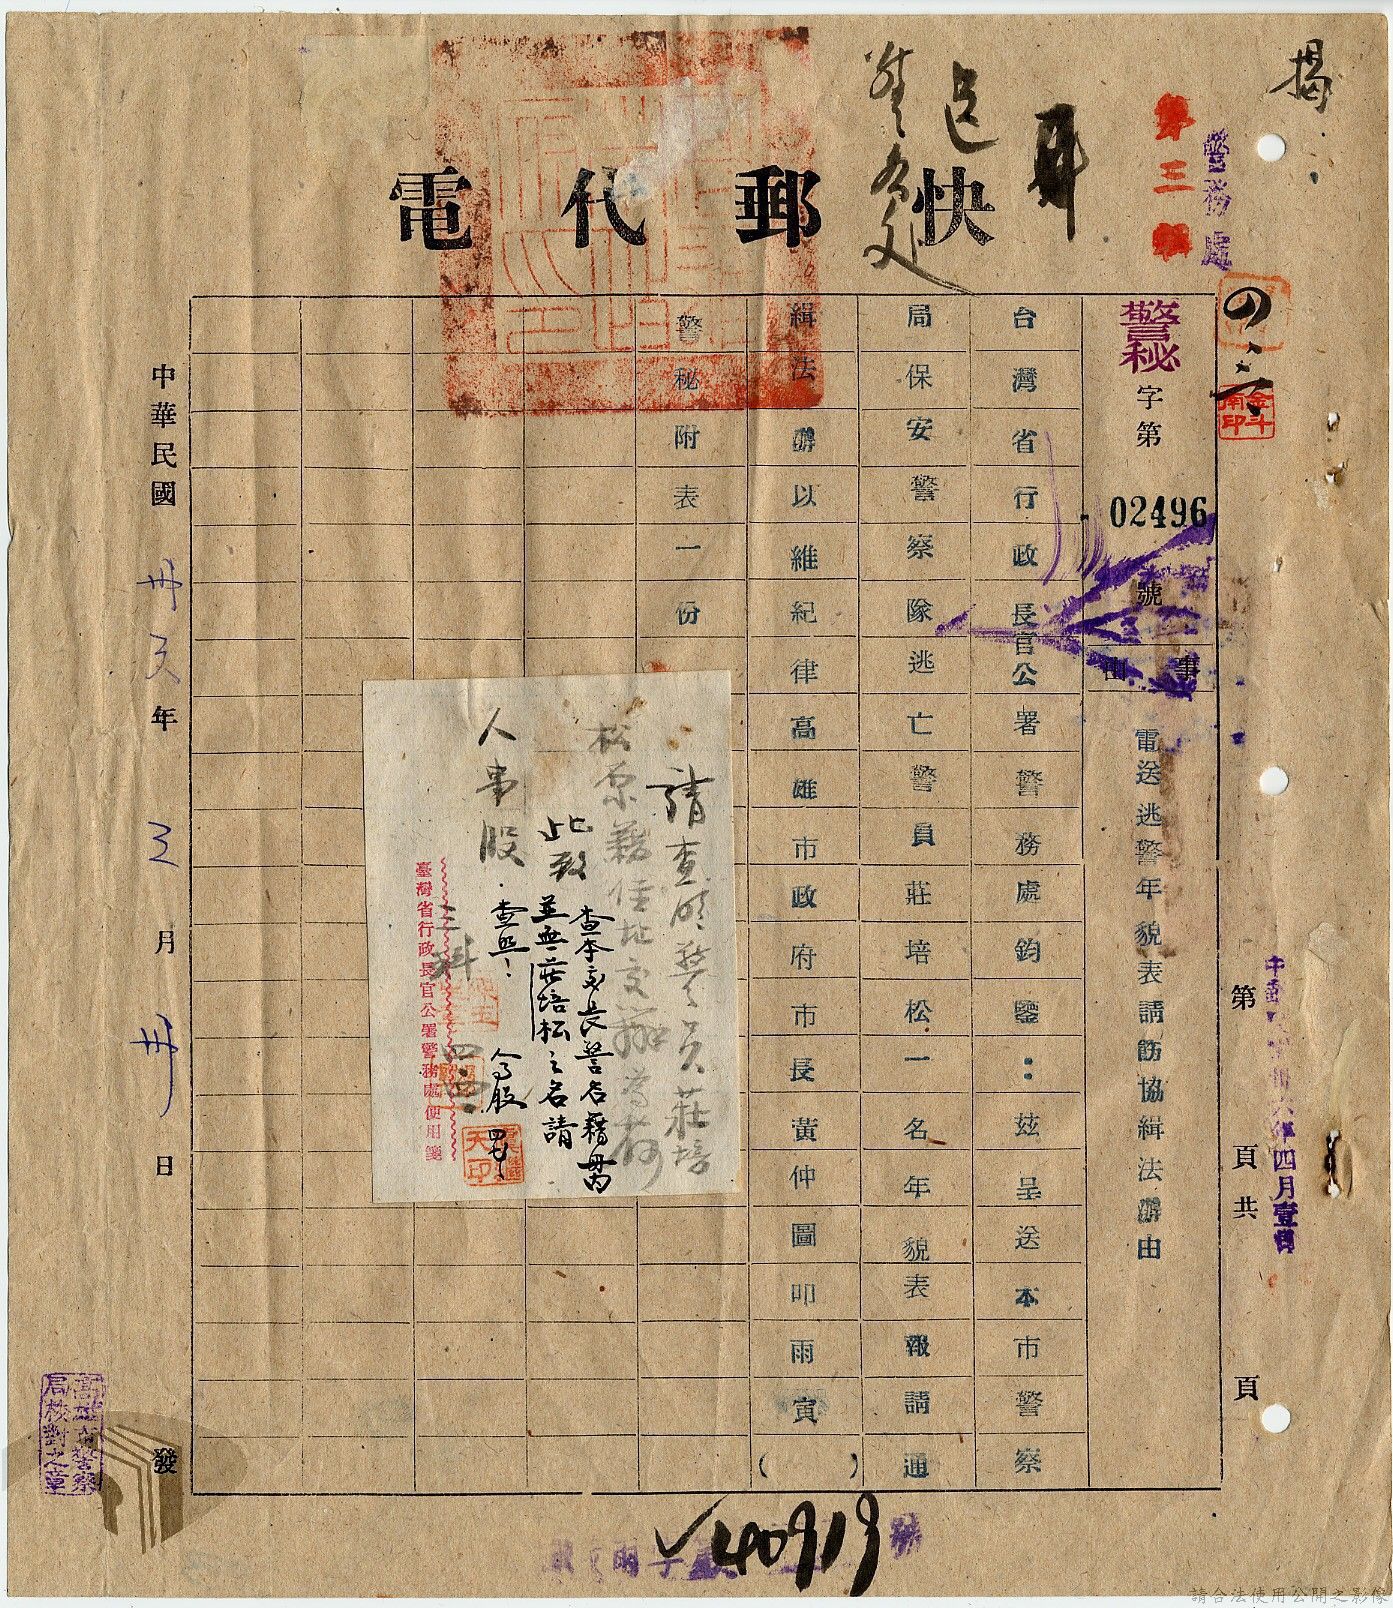 揭
第三
警務處
快郵代電
警秘字第02496號
事由
電送逃警年貌表請飭協緝法辦由
台灣省行政長官公署警務處鈞鑒：茲呈送本市警察
局保安警察隊逃亡警員莊培松一名年貌表報請通
緝法辦以維紀律高雄市政府市長黃仲圖叩雨寅（　）
警秘附表一份
請查明警員莊培
松原籍住址交辦為荷
此致
人事股
三科
查本處長警名籍冊內
並無莊培松之名請
查照！
臺灣省行政長官公署警務處便用箋
中華民國卅六年三月卅日發
第頁共頁
六年四月壹
高雄市警察
局校對之章
40919
號
請合法使用公開之影像